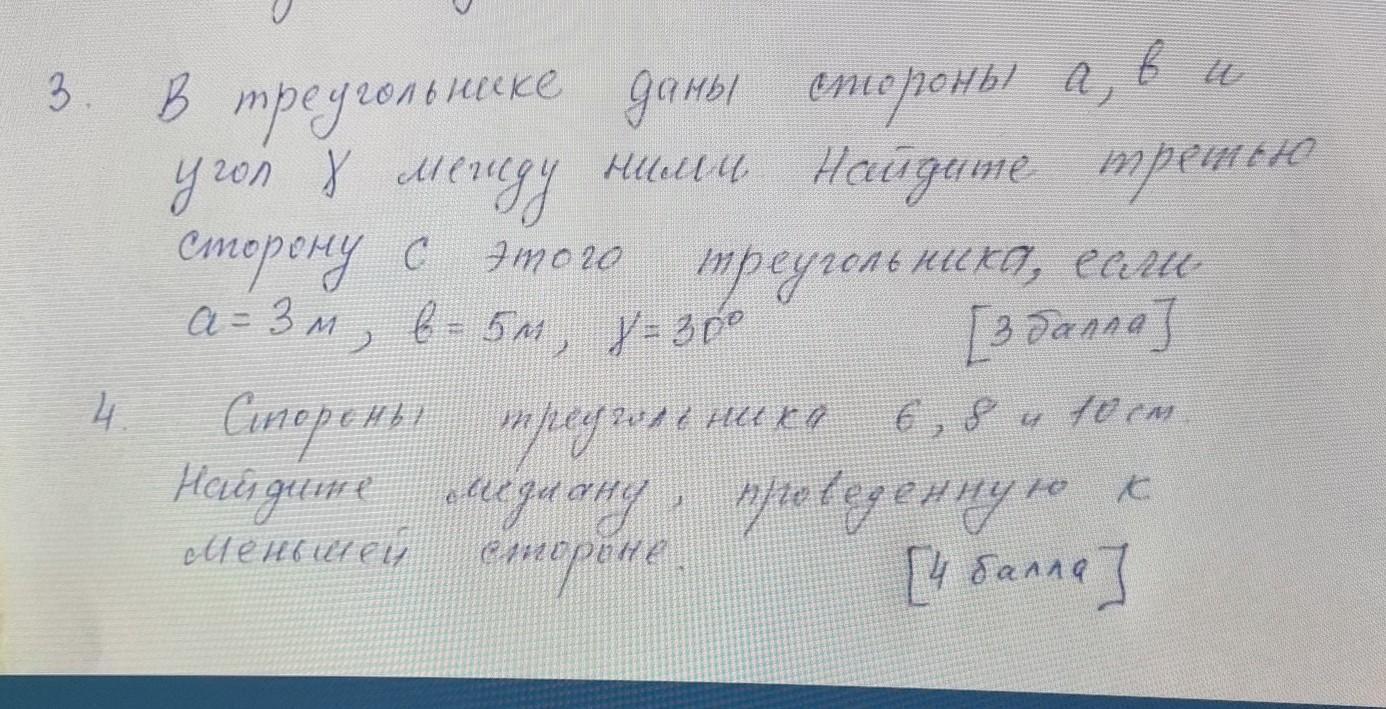 3. В треугольнике даны стороны а, в и
угол γ между ними Найдите третью
сторону с этого треугольника, если
а = 3м, в = 5м, γ = 30° [3 балла]
4. Стороны треугольника 6, 8 и 10 см.
Найдите медиану, проведенную к
меньшей стороне. [4 балла]